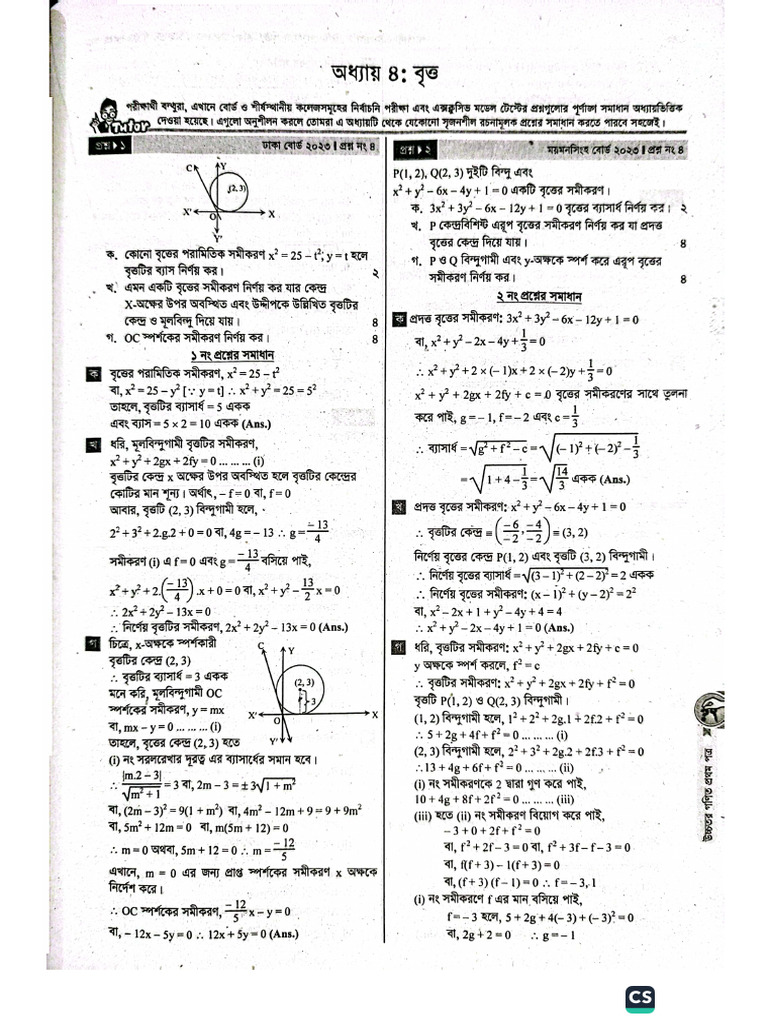 অধ্যায় ৪: বৃত্ত
পরীক্ষার্থী বন্ধুরা, এখানে বোর্ড ও শীর্ষস্থানীয় কলেজসমূহের নির্বাচনি পরীক্ষা এবং এক্সক্লুসিভ মডেল টেস্টের প্রশ্নগুলোর পূর্ণাঙ্গ সমাধান অধ্যায়ভিত্তিক
দেওয়া হয়েছে। এগুলো অনুশীলন করলে তোমরা এ অধ্যায়টি থেকে যেকোনো সৃজনশীল রচনামূলক প্রশ্নের সমাধান করতে পারবে সহজেই।
Tutor
প্রশ্ন ▶ ১ ঢাকা বোর্ড ২০২৩। প্রশ্ন নং ৪
C Y
(2, 3)
X' O X
Y'
ক. কোনো বৃত্তের পরামিতিক সমীকরণ x² = 25 – t²; y = t হলে
বৃত্তটির ব্যাস নির্ণয় কর। ২
খ. এমন একটি বৃত্তের সমীকরণ নির্ণয় কর যার কেন্দ্র
X-অক্ষের উপর অবস্থিত এবং উদ্দীপকে উল্লিখিত বৃত্তটির
কেন্দ্র ও মূলবিন্দু দিয়ে যায়। ৪
গ. OC স্পর্শকের সমীকরণ নির্ণয় কর। ৪
১ নং প্রশ্নের সমাধান
ক বৃত্তের পরামিতিক সমীকরণ, x² = 25 – t²
বা, x² = 25 – y² [∵ y = t] ∴ x² + y² = 25 = 5²
তাহলে, বৃত্তটির ব্যাসার্ধ = 5 একক
এবং ব্যাস = 5 × 2 = 10 একক (Ans.)
খ ধরি, মূলবিন্দুগামী বৃত্তটির সমীকরণ,
x² + y² + 2gx + 2fy = 0 ... ... ... (i)
বৃত্তটির কেন্দ্র x অক্ষের উপর অবস্থিত হলে বৃত্তটির কেন্দ্রের
কোটির মান শূন্য। অর্থাৎ, – f = 0 বা, f = 0
আবার, বৃত্তটি (2, 3) বিন্দুগামী হলে,
2² + 3² + 2.g.2 + 0 = 0 বা, 4g = – 13 ∴ g = –13/4
সমীকরণ (i) এ f = 0 এবং g = –13/4 বসিয়ে পাই,
x² + y² + 2.(–13/4).x + 0 = 0 বা, x² + y² – 13/2 x = 0
∴ 2x² + 2y² – 13x = 0
∴ নির্ণেয় বৃত্তটির সমীকরণ, 2x² + 2y² – 13x = 0 (Ans.)
গ চিত্রে, x-অক্ষকে স্পর্শকারী
বৃত্তটির কেন্দ্র (2, 3)
∴ বৃত্তটির ব্যাসার্ধ = 3 একক
মনে করি, মূলবিন্দুগামী OC
স্পর্শকের সমীকরণ, y = mx
বা, mx – y = 0 ... ... ... (i)
C Y
(2, 3)
3
X' O X
Y'
তাহলে, বৃত্তের কেন্দ্র (2, 3) হতে
(i) নং সরলরেখার দূরত্ব এর ব্যাসার্ধের সমান হবে।
∴ |m.2 – 3|/√(m² + 1) = 3 বা, 2m – 3 = ± 3√(1 + m²)
বা, (2m – 3)² = 9(1 + m²) বা, 4m² – 12m + 9 = 9 + 9m²
বা, 5m² + 12m = 0 বা, m(5m + 12) = 0
∴ m = 0 অথবা, 5m + 12 = 0 ∴ m = –12/5
এখানে, m = 0 এর জন্য প্রাপ্ত স্পর্শকের সমীকরণ x অক্ষকে
নির্দেশ করে।
∴ OC স্পর্শকের সমীকরণ, –12/5 x – y = 0
বা, – 12x – 5y = 0 ∴ 12x + 5y = 0 (Ans.)
প্রশ্ন ▶ ২ ময়মনসিংহ বোর্ড ২০২৩। প্রশ্ন নং ৪
P(1, 2), Q(2, 3) দুইটি বিন্দু এবং
x² + y² – 6x – 4y + 1 = 0 একটি বৃত্তের সমীকরণ।
ক. 3x² + 3y² – 6x – 12y + 1 = 0 বৃত্তের ব্যাসার্ধ নির্ণয় কর। ২
খ. P কেন্দ্রবিশিষ্ট এরূপ বৃত্তের সমীকরণ নির্ণয় কর যা প্রদত্ত
বৃত্তের কেন্দ্র দিয়ে যায়। ৪
গ. P ও Q বিন্দুগামী এবং y-অক্ষকে স্পর্শ করে এরূপ বৃত্তের
সমীকরণ নির্ণয় কর। ৪
২ নং প্রশ্নের সমাধান
ক প্রদত্ত বৃত্তের সমীকরণ: 3x² + 3y² – 6x – 12y + 1 = 0
বা, x² + y² – 2x – 4y + 1/3 = 0
∴ x² + y² + 2 × (– 1)x + 2 × (– 2)y + 1/3 = 0
x² + y² + 2gx + 2fy + c = 0 বৃত্তের সমীকরণের সাথে তুলনা
করে পাই, g = – 1, f = – 2 এবং c = 1/3
∴ ব্যাসার্ধ = √(g² + f² – c) = √((– 1)² + (– 2)² – 1/3)
= √(1 + 4 – 1/3) = √(14/3) একক (Ans.)
খ প্রদত্ত বৃত্তের সমীকরণ: x² + y² – 6x – 4y + 1 = 0
∴ বৃত্তটির কেন্দ্র ≡ (–6/–2, –4/–2) ≡ (3, 2)
নির্ণেয় বৃত্তের কেন্দ্র P(1, 2) এবং বৃত্তটি (3, 2) বিন্দুগামী।
∴ নির্ণেয় বৃত্তের ব্যাসার্ধ = √((3 – 1)² + (2 – 2)²) = 2 একক
∴ নির্ণেয় বৃত্তের সমীকরণ: (x – 1)² + (y – 2)² = 2²
বা, x² – 2x + 1 + y² – 4y + 4 = 4
∴ x² + y² – 2x – 4y + 1 = 0 (Ans.)
গ ধরি, বৃত্তটির সমীকরণ: x² + y² + 2gx + 2fy + c = 0
y অক্ষকে স্পর্শ করলে, f² = c
∴ বৃত্তটির সমীকরণ: x² + y² + 2gx + 2fy + f² = 0
বৃত্তটি P(1, 2) ও Q(2, 3) বিন্দুগামী।
(1, 2) বিন্দুগামী হলে, 1² + 2² + 2g.1 + 2f.2 + f² = 0
∴ 5 + 2g + 4f + f² = 0 ... ... ... (i)
(2, 3) বিন্দুগামী হলে, 2² + 3² + 2g.2 + 2f.3 + f² = 0
∴ 13 + 4g + 6f + f² = 0 ... ... ... (ii)
(i) নং সমীকরণকে 2 দ্বারা গুণ করে পাই,
10 + 4g + 8f + 2f² = 0 ... ... ... (iii)
(iii) হতে (ii) নং সমীকরণ বিয়োগ করে পাই,
– 3 + 0 + 2f + f² = 0
বা, f² + 2f – 3 = 0 বা, f² + 3f – f – 3 = 0
বা, f(f + 3) – 1(f + 3) = 0
বা, (f + 3) (f – 1) = 0 ∴ f = – 3, 1
(i) নং সমীকরণে f এর মান বসিয়ে পাই,
f = – 3 হলে, 5 + 2g + 4(– 3) + (– 3)² = 0
বা, 2g + 2 = 0 ∴ g = – 1
উচ্চতর গণিত প্রথম পত্র
CS